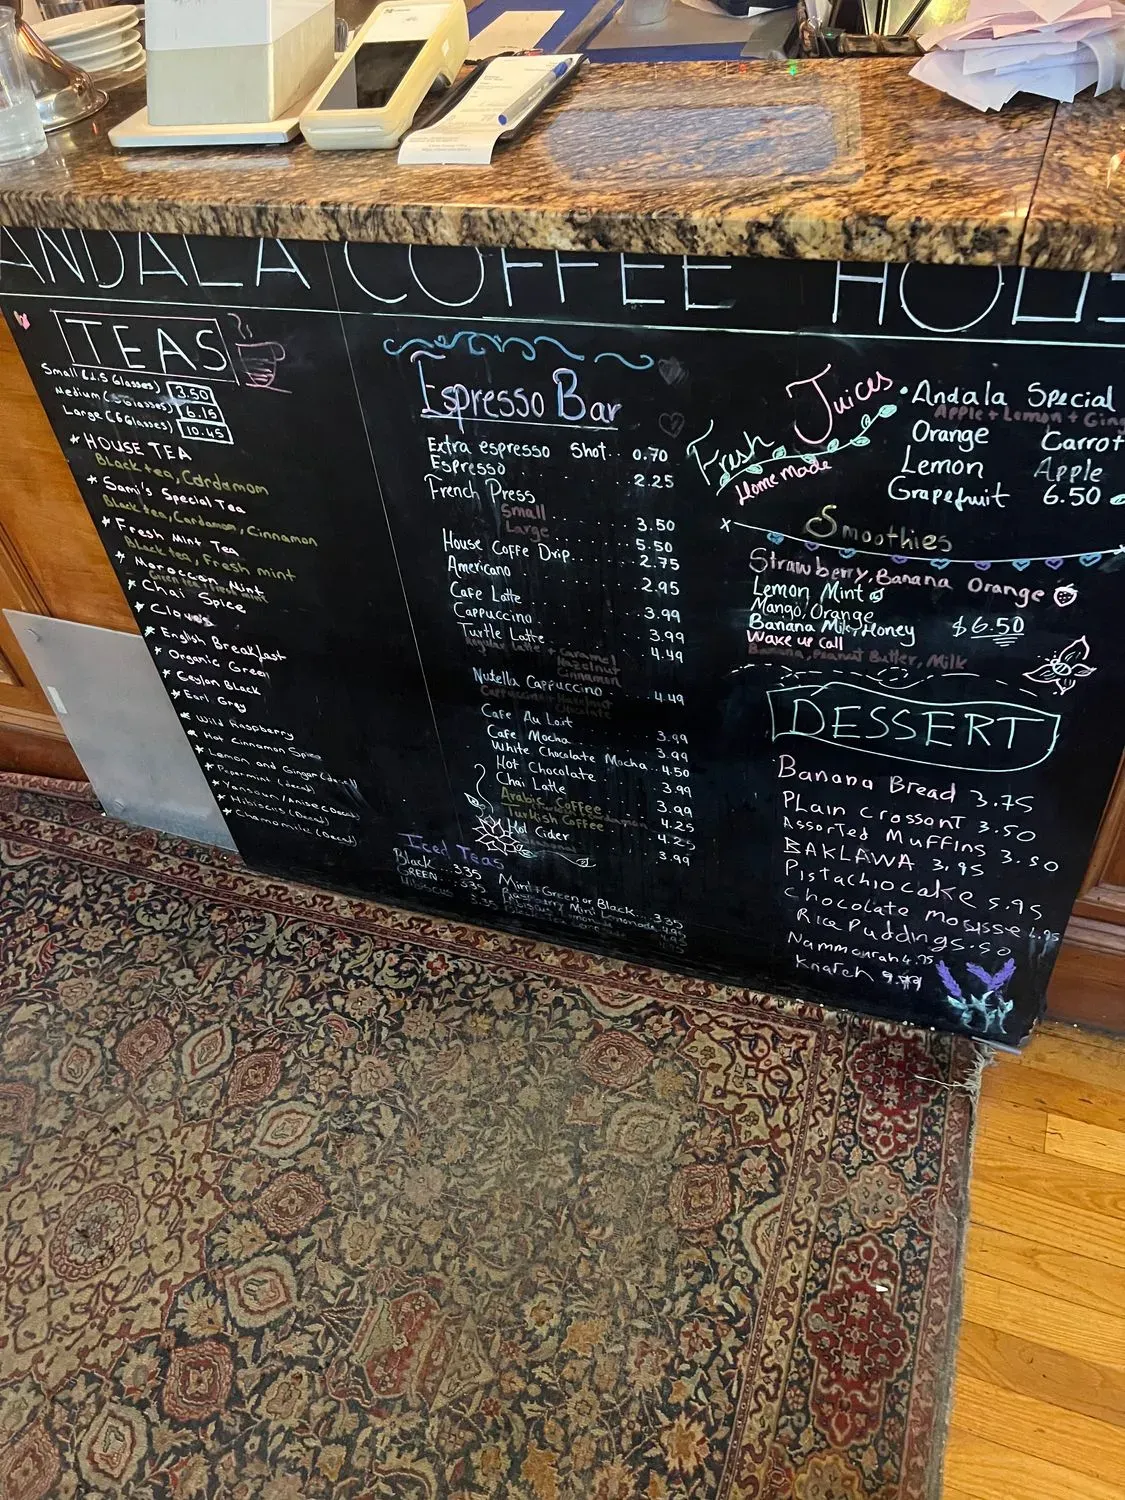 ANDALA COFFEE HOUS
TEAS
Small (1.5 Glasses) 3.50
Medium (3 Glasses) 6.15
Large (6 Glasses) 10.45
* HOUSE TEA
Black tea, Cardamom
* Sami's Special Tea
Black tea, Cardamom, Cinnamon
* Fresh Mint Tea
Black tea, Fresh mint
* Moroccan Mint
* Chai Spice
* Cloves
* English Breakfast
* Organic Green
* Ceylon Black
* Earl Grey
* Wild Raspberry
* Hot Cinnamon Spice
* Lemon and Ginger (decaf)
* Peppermint (decaf)
* Yansoun/Anise (Decaf)
* Hibiscus (Decaf)
* Chamomile (Decaf)
Espresso Bar
Extra espresso Shot.. 0.70
Espresso 2.25
French Press
Small 3.50
Large 5.50
House Coffe Drip 2.75
Americano 2.95
Cafe Latte 3.99
Cappuccino 3.99
Turtle Latte 4.49
Regular Latte + Caramel
Hazelnut
Cinnamon
Nutella Cappuccino 4.49
Cappuccino + Hazelnut
Chocolate
Cafe Au Lait 3.99
Cafe Mocha 3.99
White Chocolate Mocha.. 4.50
Hot Chocolate 3.99
Chai Latte 3.99
Arabic Coffee 4.25
Turkish Coffee 4.25
Hot Cider 3.99
Iced Teas
Black ... 3.35
GREEN ... 3.35
Hibiscus 3.35
Mint + Green or Black... 3.35
Raspberry Mint Lemonade 4.95
Fresh Juices
Home made
• Andala Special
Apple + Lemon + Ging
Orange Carrot
Lemon Apple
Grapefruit 6.50
Smoothies
Strawberry, Banana Orange
Lemon Mint
Mango, Orange
Banana Milk, Honey $6.50
Wake up Call
Banana, Peanut Butter, Milk
DESSERT
Banana Bread 3.75
PLain crossonT 3.50
Assorted Muffins 3.50
BAKLAWA 3.95
Pistachio cake 5.95
chocolate mousse
Rice Pudding 5.50
Nammourah 4.95
Knafeh 9.99